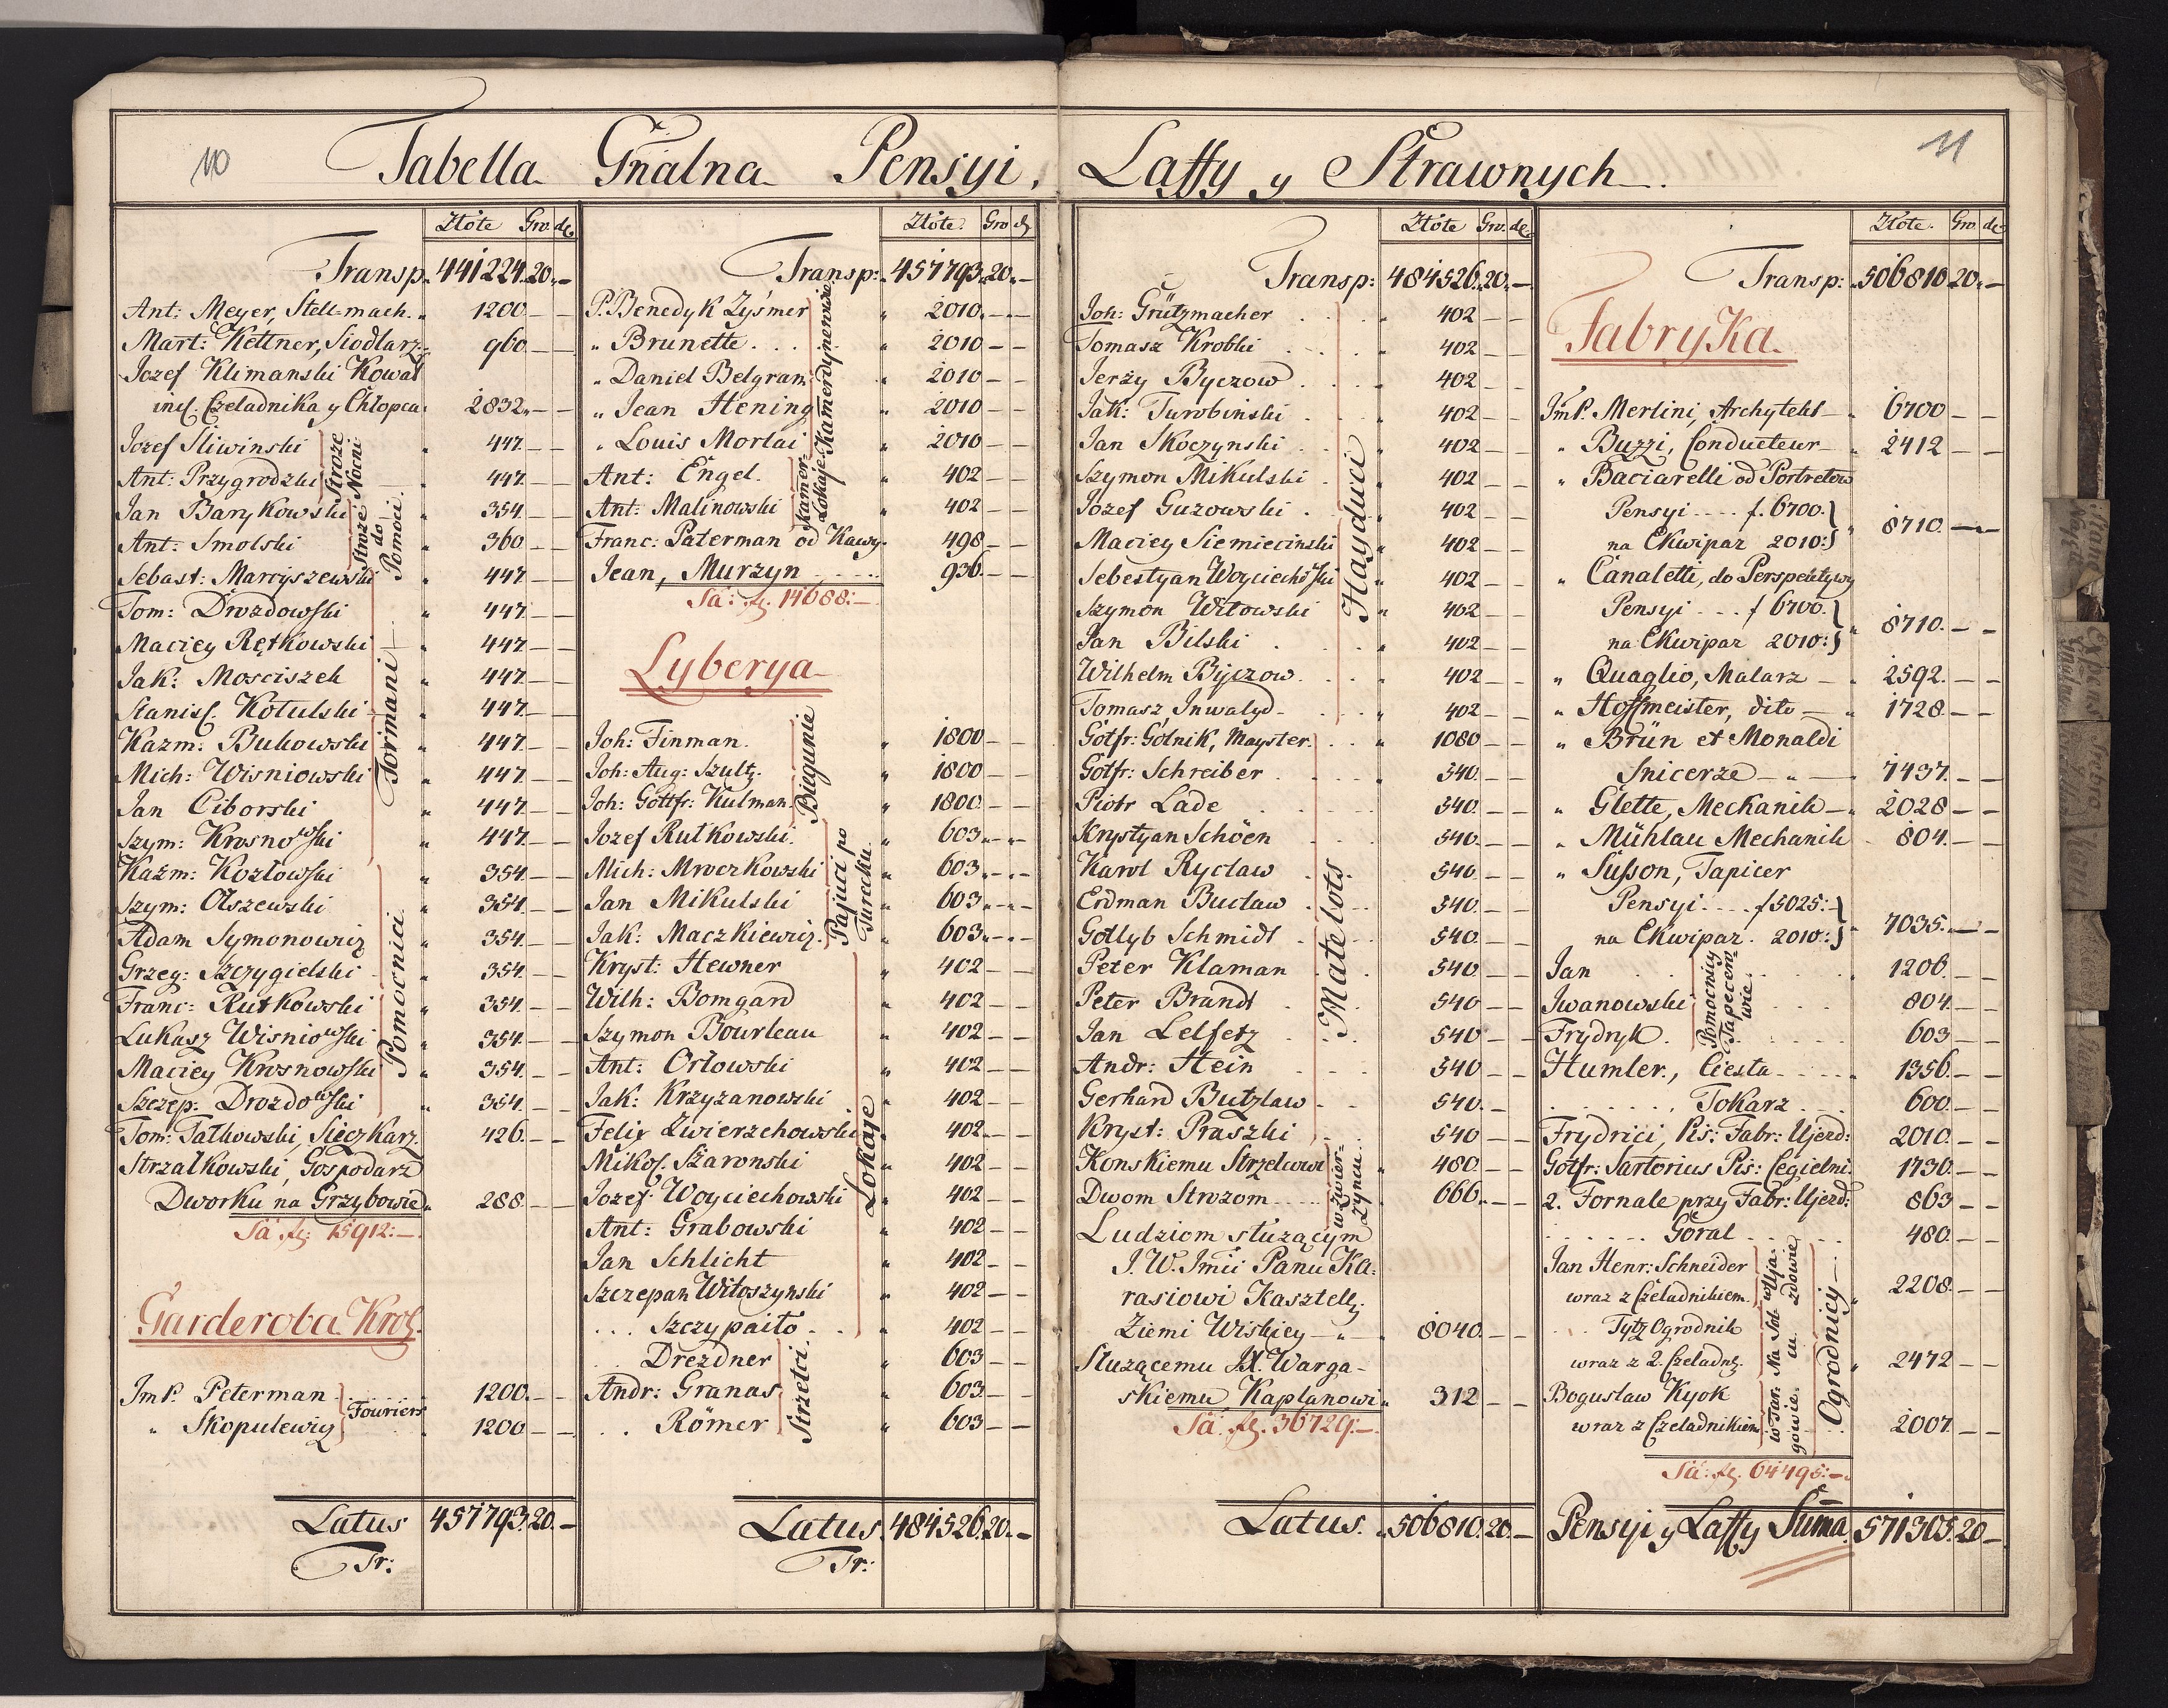 10
Tabella Gnalna Pensyi, Laffy y Strawnych.
11
Złote Gro. de.
Transp. 441224. 20. —
Ant: Meyer, Stellmach. 1200. — —
Mart: Kettner, Siodlarz. 960. — —
Jozef Klimanski Kowal
incl. Czeladnika y Chłopca. 2832. — —
Jozef Sliwinski 447. — —
Ant: Przygrodzki 447. — —
Stroże Nocni
Jan Barykowski 354. — —
Ant: Smolski 360. — —
Stroże do Pomoci.
Sebast: Marcyszewski 447. — —
Tom: Drozdowski 447. — —
Maciey Rętkowski 447. — —
Jak: Mosciszek 447. — —
Stanisł. Kotulski 447. — —
Kazm: Bukowski 447. — —
Mich: Wisniowski 447. — —
Jan Ciborski 447. — —
Szym: Krosnowski 447. — —
Formani
Kazm: Kozłowski 354. — —
Szym: Olszewski 354. — —
Adam Symonowicz 354. — —
Grzeg: Szczygielski 354. — —
Franc: Rutkowski 354. — —
Lukasz Wisniowski 354. — —
Maciey Krosnowski 354. — —
Szczep: Drozdowski 354. — —
Pomocnici
Tom: Tatkowski, Sieczkarz. 426. — —
Strzałkowski, Gospodarz
Dworku na Grzybowie 288. — —
Sa fl. 15912: —
Garderoba Krol.
ImP. Peterman 1200. — —
" Skopulewicz 1200. — —
Fouriers
Latus 457793. 20. —
Tr:
Złote. Gro d
Transp: 457793. 20. —
P. Benedyk Zysmer 2010. — —
" Brunette 2010 — —
" Daniel Belgram 2010 — —
" Jean Hening 2010 — —
" Louis Morlai 2010 — —
Kamerdynerowie
Ant: Engel. 402 — —
Ant: Malinowski 402 — —
Kamer-Lokaje
Franc: Paterman od Kawy. 498 — —
Jean, Murzyn 936. — —
Sa: fl. 14688: —
Lyberya
Joh: Finman. 1800 — —
Joh: Aug: Szultz. 1800 — —
Joh: Gottfr: Kulman 1800. — —
Biegunie
Jozef Rutkowski. 603. — —
Mich: Mroczkowski 603. — —
Jan Mikulski 603. — —
Jak: Maczkiewicz. 603. — —
Pajuci po Turecku
Kryst: Hewner 402 — —
Wilh: Bomgard 402 — —
Szymon Bourleau 402 — —
Ant: Orłowski 402 — —
Jak: Krzyzanowski 402 — —
Felix Zwierzchowski 402. — —
Mikoł. Szaronski 402 — —
Jozef Woyciechowski 402 — —
Ant: Grabowski 402 — —
Jan Schlicht 402 — —
Szczepan Witoszynski 402 — —
. . . Szczypaito 402 — —
Lokaje
. . Drezdner 603 — —
Andr: Granas 603. — —
. . Römer 603 — —
Strzelci.
Latus. 484526. 20. —
Tr:
Złote Gro. de.
Transp: 484526. 20. —
Joh: Grützmacher 402 — —
Tomasz Krobki 402 — —
Jerży Byczow 402 — —
Jak: Turobinski 402 — —
Jan Skoczynski 402 — —
Szymon Mikulski 402 — —
Jozef Guzowski 402 — —
Maciey Siemiecinski 402 — —
Sebestyan Woyciechowski 402 — —
Szymon Witowski 402 — —
Jan Bilski 402 — —
Wilhelm Byczow. 402 — —
Tomasz Inwalyd 402 — —
Hayduci
Gotfr: Golnik, Mayster. 1080 — —
Gotfr: Schreiber 540. — —
Piotr Lade 540. — —
Krystyan Schöen 540. — —
Karol Rycław 540. — —
Erdman Bucław 540. — —
Gotlyb Schmidt 540. — —
Peter Klaman 540 — —
Peter Brandt 540 — —
Jan Lelfetz 540 — —
Andr: Hein 540 — —
Gerhard Butzlaw 540. —
Kryst: Praszki 540 — —
Matelots.
Konskiemu Strzelcowi 480. — —
Dwom Strozom 666. — —
w Zwierzyncu.
Ludziom służącym
J. W. Imći Panu Ka:
rasiowi Kasztell.
Ziemi Wiskiey 8040. — —
Służącemu X. Warga-
skiemu, Kapłanowi 312 — —
Sa: fl. 36729: —
Latus. 506810. 20. —
Złote. Gro de
Transp: 506810. 20. —
Fabryka.
ImP. Merlini, Archytekt 6700 — —
" Buzzi, Conducteur 2412 — —
" Baciarelli od Portretow
Pensyi . . . . f. 6700.
na Ekwipaz 2010: 8710. — —
" Canaletti, do Perspektywy
Pensyi . . . f 6700.
na Ekwipaz 2010: 8710. — —
" Quaglio, Malarz 2592. — —
" Hoffmeister, dito 1728 — —
" Brün et Monaldi
Snicerze 7437. — —
" Glette, Mechanik 2028 — —
" Mühlau Mechanik 804. — —
" Susson, Tapicer
Pensyi . . . f 5025:
na Ekwipaz. 2010: 7035. — —
Jan 1206. — —
Iwanowski 804. — —
Frydryk 603 — —
Pomocnicy Tapecerowie.
Humler, Ciesla 1356. — —
. . . . . . Tokarz 600. — —
Frydrici, Pis: Fabr: Ujezd: 2010. — —
Gotfr: Sartorius Pis: Cegielni: 1730. — —
2. Fornale przy Fabr: Ujezd: 863 — —
. . . . . . Góral 480. — —
Jan Henr: Schneider
wraz z Czeladnikiem. 2208. — —
w Ujazdowie
. . Tytz Ogrodnik
wraz z 2. Czeladn. 2472 — —
Na Solcu.
Bogusław Kyok
wraz z Czeladnikiem 2007. — —
w Targowie.
Ogrodnicy
Sa: fl. 64495: —
Pensyi y Laffy Suma. 571305. 20 —